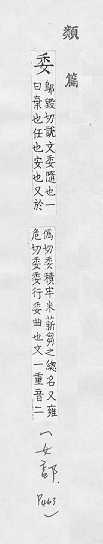 類篇
委
鄔毀切說文委隨也一
曰棄也任也安也又於
僞切委積牢米薪芻之總名又雍
危切委委行委曲也文一重音二
(女部. P463)